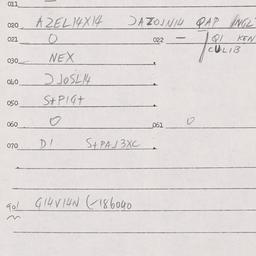 011
020 AZEL14X14 JAZOJN14 QAP INGL
021 O 022 — / QI KEN
CULIB
030 NEX
040 JJOSL14
050 S+P1G+
060 O 061 O
070 DI S+PAJ3XC
901 G14V14N (-186040